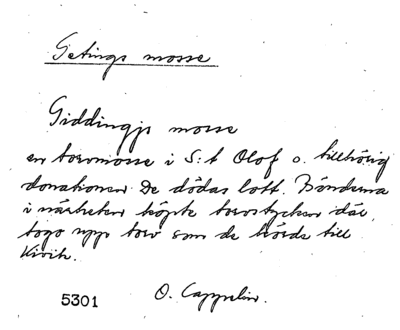 Getings mosse
Giddingjs mosse
en torvmosse i S:t Olof o. tillhörig
donationen De dödas lott. Bönderna
i närheten köpte torvstycken där,
togo upp torv som de körde till
Kivik.
5301 O. Cappelin.